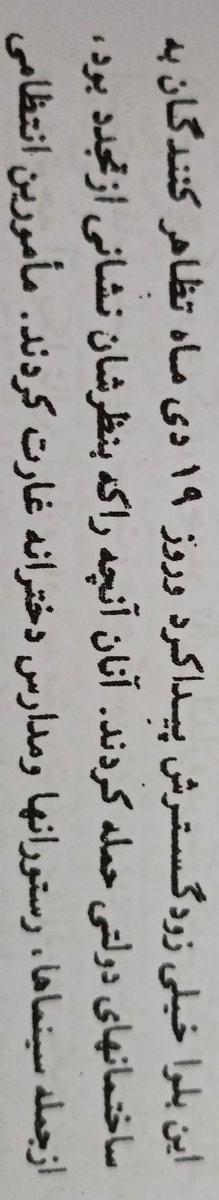 این بلوا خیلی زود گسترش پیدا کرد و روز ۱۹ دی ماه تظاهر کنندگان به
ساختمانهای دولتی حمله کردند. آنان آنچه را که بنظرشان نشانی از تجدد بود،
از جمله سینماها، رستورانها و مدارس دخترانه غارت کردند. مأمورین انتظامی